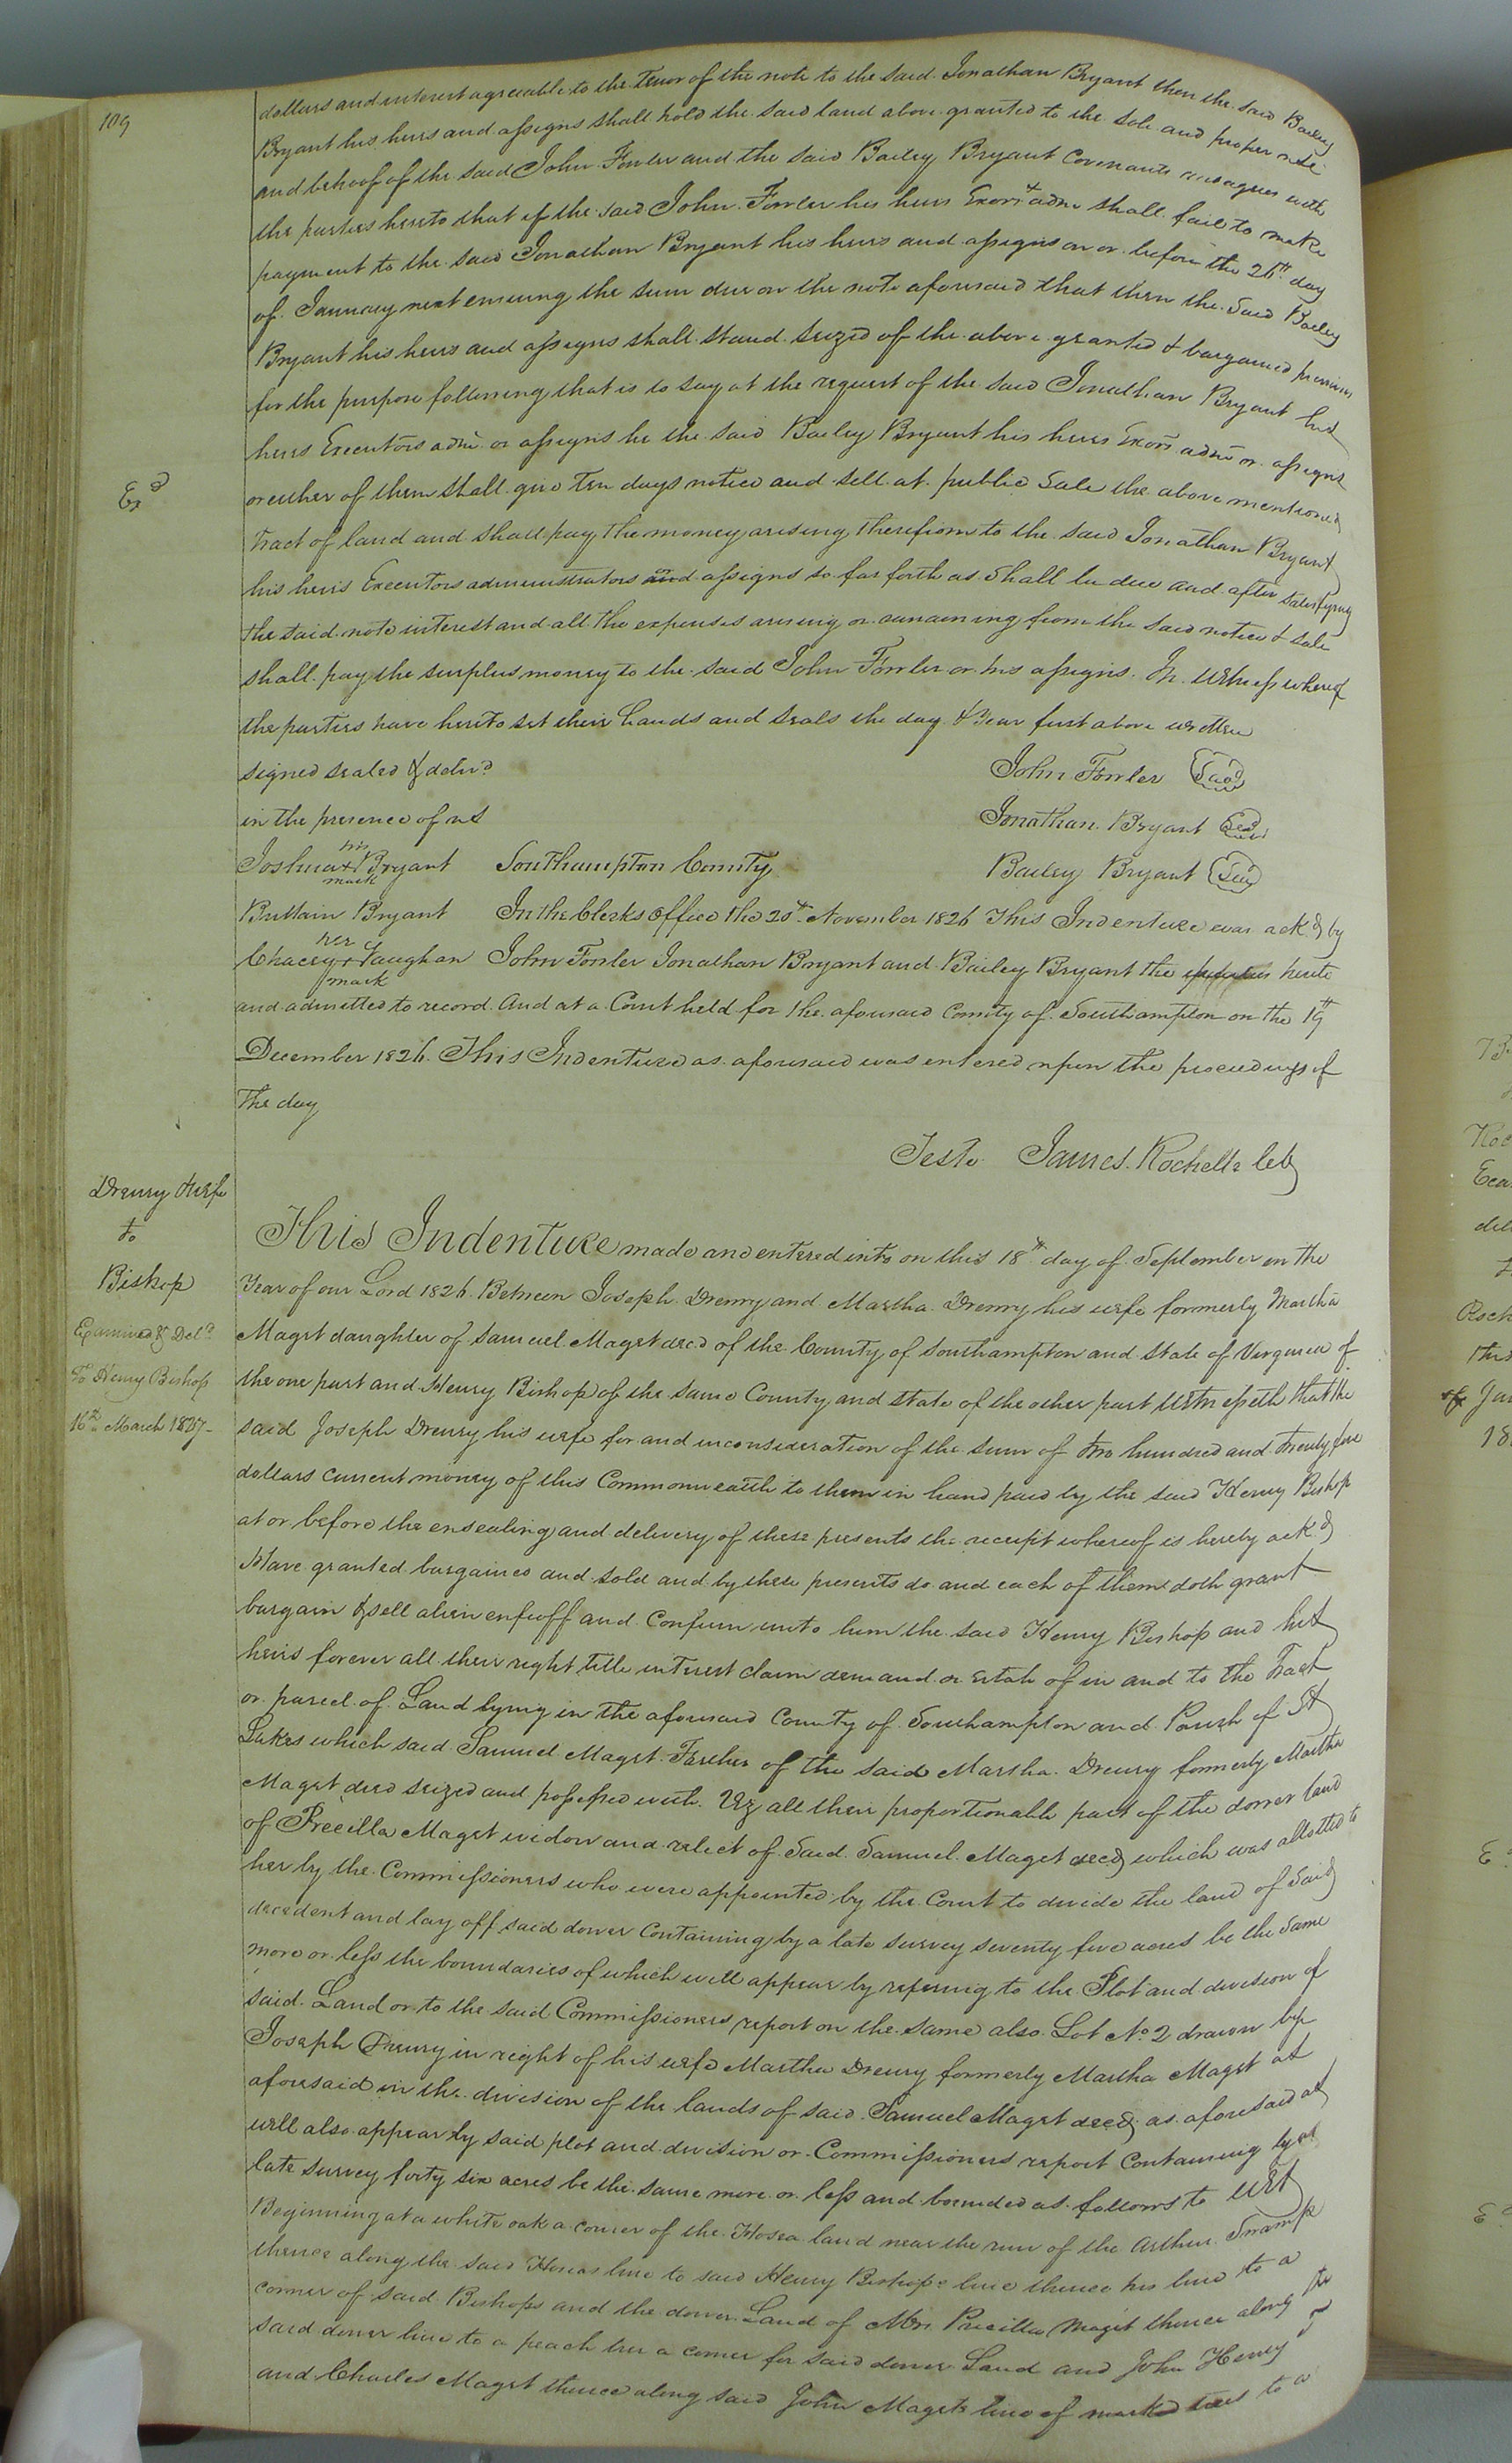 109
dollars and interest agreeable to the Tenor of the note to the said Jonathan Bryant then the said Bailey
Bryant his heirs and assigns shall hold the said land above granted to the sole and proper use
and behoof of the said John Fowler and the said Bailey Bryant Covenants and agrees with
the parties hereto that if the said John Fowler his heirs Exors & adms shall fail to make
payment to the said Jonathan Bryant his heirs and assigns on or before the 26th day
of January next ensuing the sum due on the note aforesaid that then the said Bailey
Bryant his heirs and assigns shall stand seized of the above granted & bargained premises
for the purpose following that is to say at the request of the said Jonathan Bryant his
heirs Executors adms or assigns he the said Bailey Bryant his heirs Exors adms or assigns
Exd
or either of them shall give Ten days notice and sell at public Sale the above mentioned
Tract of land and shall pay the money arising therefrom to the said Jonathan Bryant
his heirs Executors administrators assigns so far forth as shall be due and after satisfying
the said note interest and all the expenses arising or remaining from the said notice & sale
shall pay the surplus money to the said John Fowler or his assigns. In Witness whereof
the parties have hereto set their hands and seals the day & Year first above written
signed sealed & deld
John Fowler Seal
in the presence of us
Jonathan Bryant Seal
his
Joshua + Bryant Southampton County
mark
Bailey Bryant Seal
Brittain Bryant In the Clerks Office the 20th November 1826 This Indenture was ackd by
her
Chacey + Vaughan John Fowler Jonathan Bryant and Bailey Bryant the parties hereto
mark
and admitted to record. And at a Court held for the aforesaid County of Southampton on the 19th
December 1826. This Indenture as aforesaid was entered upon the proceedings of
the day
Teste James Rochelle Clk
Drewry & wife
to
Bishop
Examined & Deld
To Henry Bishop
16th March 1827
This Indenture made and entered into on this 18th day of September in the
Year of our Lord 1826 Between Joseph Drewry and Martha Drewry his wife formerly Martha
Maget daughter of Samuel Maget decd of the County of Southampton and State of Virginia of
the one part and Henry Bishop of the same County and State of the other part Witnesseth that the
said Joseph Drewry his wife for and in consideration of the sum of two hundred and twenty five
dollars current money of this Commonwealth to them in hand paid by the said Henry Bishop
at or before the ensealing and delivery of these presents the receipt whereof is hereby ackd
Have granted bargained and sold and by these presents do and each of them doth grant
bargain & sell alien enfeoff and Confirm unto him the said Henry Bishop and his
heirs forever all their right title interest claim demand or estate of in and to the Tract
or parcel of Land lying in the aforesaid County of Southampton and Parish of St
Lukes which said Samuel Maget Father of the said Martha Drewry formerly Martha
Maget died seized and possessed with. Viz all their proportionable part of the dower land
of Precilla Maget widow and relict of Said Samuel Maget decd which was allotted to
her by the Commissioners who were appointed by the Court to devide the land of said
decedent and lay off said dower Containing by a late survey seventy five acres be the same
more or less the boundaries of which will appear by refering to the Plot and division of
said Land or to the said Commissioners report on the same also Lot No 2 drawn by
Joseph Drewry in right of his wife Martha Drewry formerly Martha Maget as
aforesaid in the division of the lands of said Samuel Maget decd as aforesaid as
will also appear by said plot and division or Commissioners report Containing by a
late survey forty six acres be the same more or less and bounded as follows to Wit
Beginning at a white oak a corner of the Hosea land near the run of the Arthur Swamp
thence along the said Hoseas line to said Henry Bishops line thence his line to a
corner of said Bishops and the dower Land of Mrs Precilla Maget thence along the
said dower line to a peach tree a corner for said dower Land and John Henry
and Charles Maget thence along said John Magets line of marked trees to a